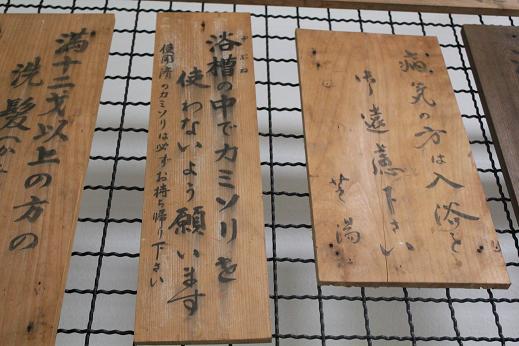 病気の方は入浴を
御遠慮下さい
芝湯
ゆぶね
浴槽の中でカミソリを
使わないよう願います
使用済のカミソリは必ずお持ち帰り下さい
満十二才以上の方の
洗髪